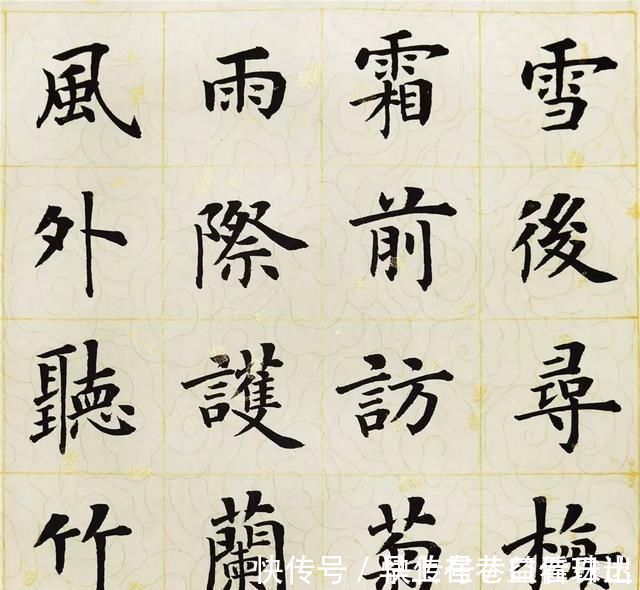 雪後尋梅
霜前訪菊
雨際護蘭
風外聽竹
快传号／